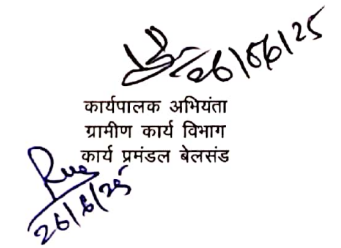 26/06/25
कार्यपालक अभियंता
ग्रामीण कार्य विभाग
कार्य प्रमंडल बेलसंड
26/6/25